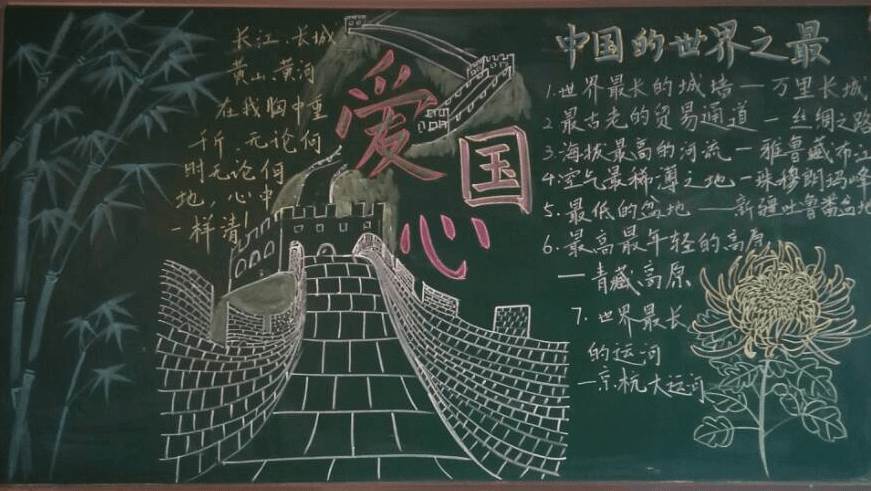 长江、长城
黄山、黄河
在我胸中重
千斤 无论何
时无论何
地，心中
一样清！
爱
国
心
中国的世界之最
1.世界最长的城墙—万里长城
2 最古老的贸易通道 — 丝绸之路
3.海拔最高的河流—雅鲁藏布江
4.空气最稀薄之地—珠穆朗玛峰
5. 最低的盆地——新疆吐鲁番盆地
6. 最高最年轻的高原
—青藏高原
7. 世界最长
的运河
—京杭大运河